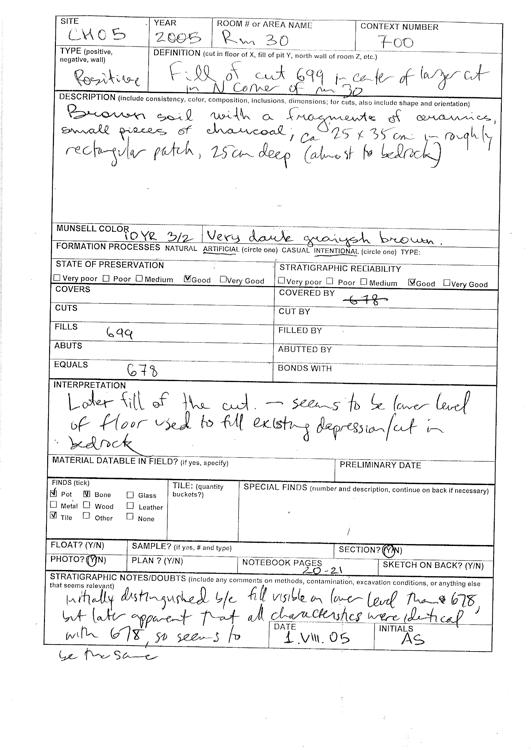 SITE YEAR ROOM # or AREA NAME CONTEXT NUMBER
CH05 2005 Rm 30 700
TYPE (positive, negative, wall) DEFINITION (cut in floor of X, fill of pit Y, north wall of room Z, etc.)
Positive Fill of cut 699 in center of larger cut
in N corner of rm 30
DESCRIPTION (include consistency, color, composition, inclusions, dimensions; for cuts, also include shape and orientation)
Brown soil with a fragments of ceramics,
small pieces of charcoal; ca 25 x 35 cm in roughly
rectangular patch, 25 cm deep (almost to bedrock)
MUNSELL COLOR 10YR 3/2 Very dark grayish brown.
FORMATION PROCESSES NATURAL ARTIFICIAL (circle one) CASUAL INTENTIONAL (circle one) TYPE:
STATE OF PRESERVATION STRATIGRAPHIC RELIABILITY
Very poor Poor Medium Good Very Good Very poor Poor Medium Good Very Good
COVERS COVERED BY 678
CUTS CUT BY
FILLS 699 FILLED BY
ABUTS ABUTTED BY
EQUALS 678 BONDS WITH
INTERPRETATION
Later fill of the cut. – seems to be lower level
of floor used to fill existing depression/cut in
bedrock
MATERIAL DATABLE IN FIELD? (if yes, specify) PRELIMINARY DATE
FINDS (tick) TILE: (quantity buckets?) SPECIAL FINDS (number and description, continue on back if necessary)
Pot Bone Glass
Metal Wood Leather
Tile Other None
FLOAT? (Y/N) SAMPLE? (if yes, # and type) SECTION? (Y/N)
PHOTO? (Y/N) PLAN ? (Y/N) NOTEBOOK PAGES 20-21 SKETCH ON BACK? (Y/N)
STRATIGRAPHIC NOTES/DOUBTS (include any comments on methods, contamination, excavation conditions, or anything else
that seems relevant)
Initially distinguished b/c fill visible on lower level than 678,
but later apparent that all characteristics were identical
with 678, so seems to
be the same
DATE INITIALS
1.VIII.05 AS